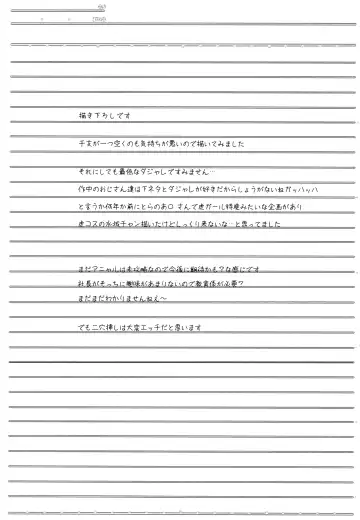 描き下ろしです
干支が一つ空くのも気持ちが悪いので描いてみました
それにしても最低なダジャレですみません…
作中のおじさん達は下ネタとダジャレが好きだからしょうがないねガッハッハ
と言うか何年か前にとらのあ□さんで虎ガール特産みたいな企画があり
虎コスの水城チャン描いたけどしっくり来ないな…と思ってました
まだアニャルは未攻略なので今後に期待かも？な感じです
社長がそっちに興味があまりないので教育係が必要？
まだまだわかりませんねぇ～
でも二穴挿しは大変エッチだと思います